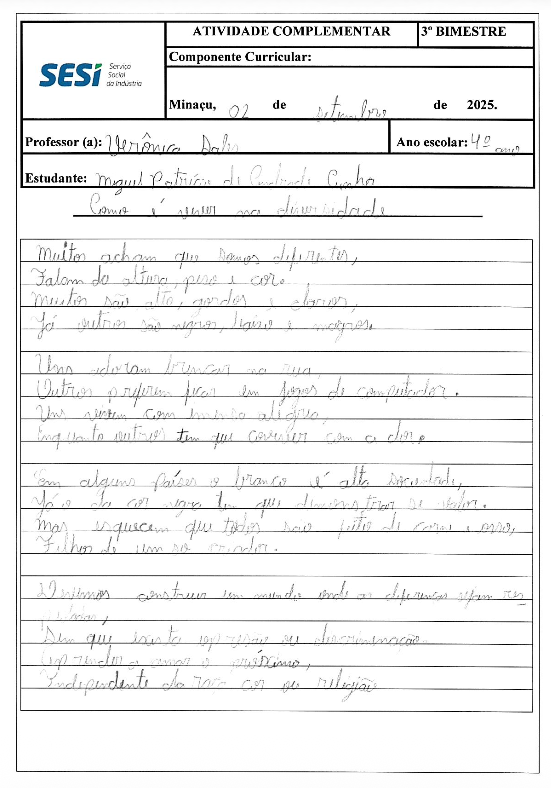 SESI Serviço
Social
da Indústria
ATIVIDADE COMPLEMENTAR 3º BIMESTRE
Componente Curricular:
Minaçu, 02 de setembro de 2025.
Professor (a): Verônica Ano escolar: 4º ano
Estudante: Miguel de Andrade Cunha
Como é viver na diversidade
Muitos acham que somos diferentes,
Falam da altura, peso e cor.
Muitos são alto, gordos e claros,
Já outros são negros, baixo e magros.
Uns adoram brincar na rua,
Outros preferem ficar em jogos de computador.
Uns vivem com imensa alegria,
Enquanto outros tem que conviver com a dor.
Em alguns países o branco é alta sociedade,
Já o da cor negra tem que demonstrar se valor.
Mas esquecem que todos são feito de carne e osso,
Filhos de um só criador.
Devemos construir um mundo onde as diferenças sejam res
peitadas,
Sem que exista opressão ou discriminação.
Aprender a amar o próximo,
Independente da raça cor ou religião